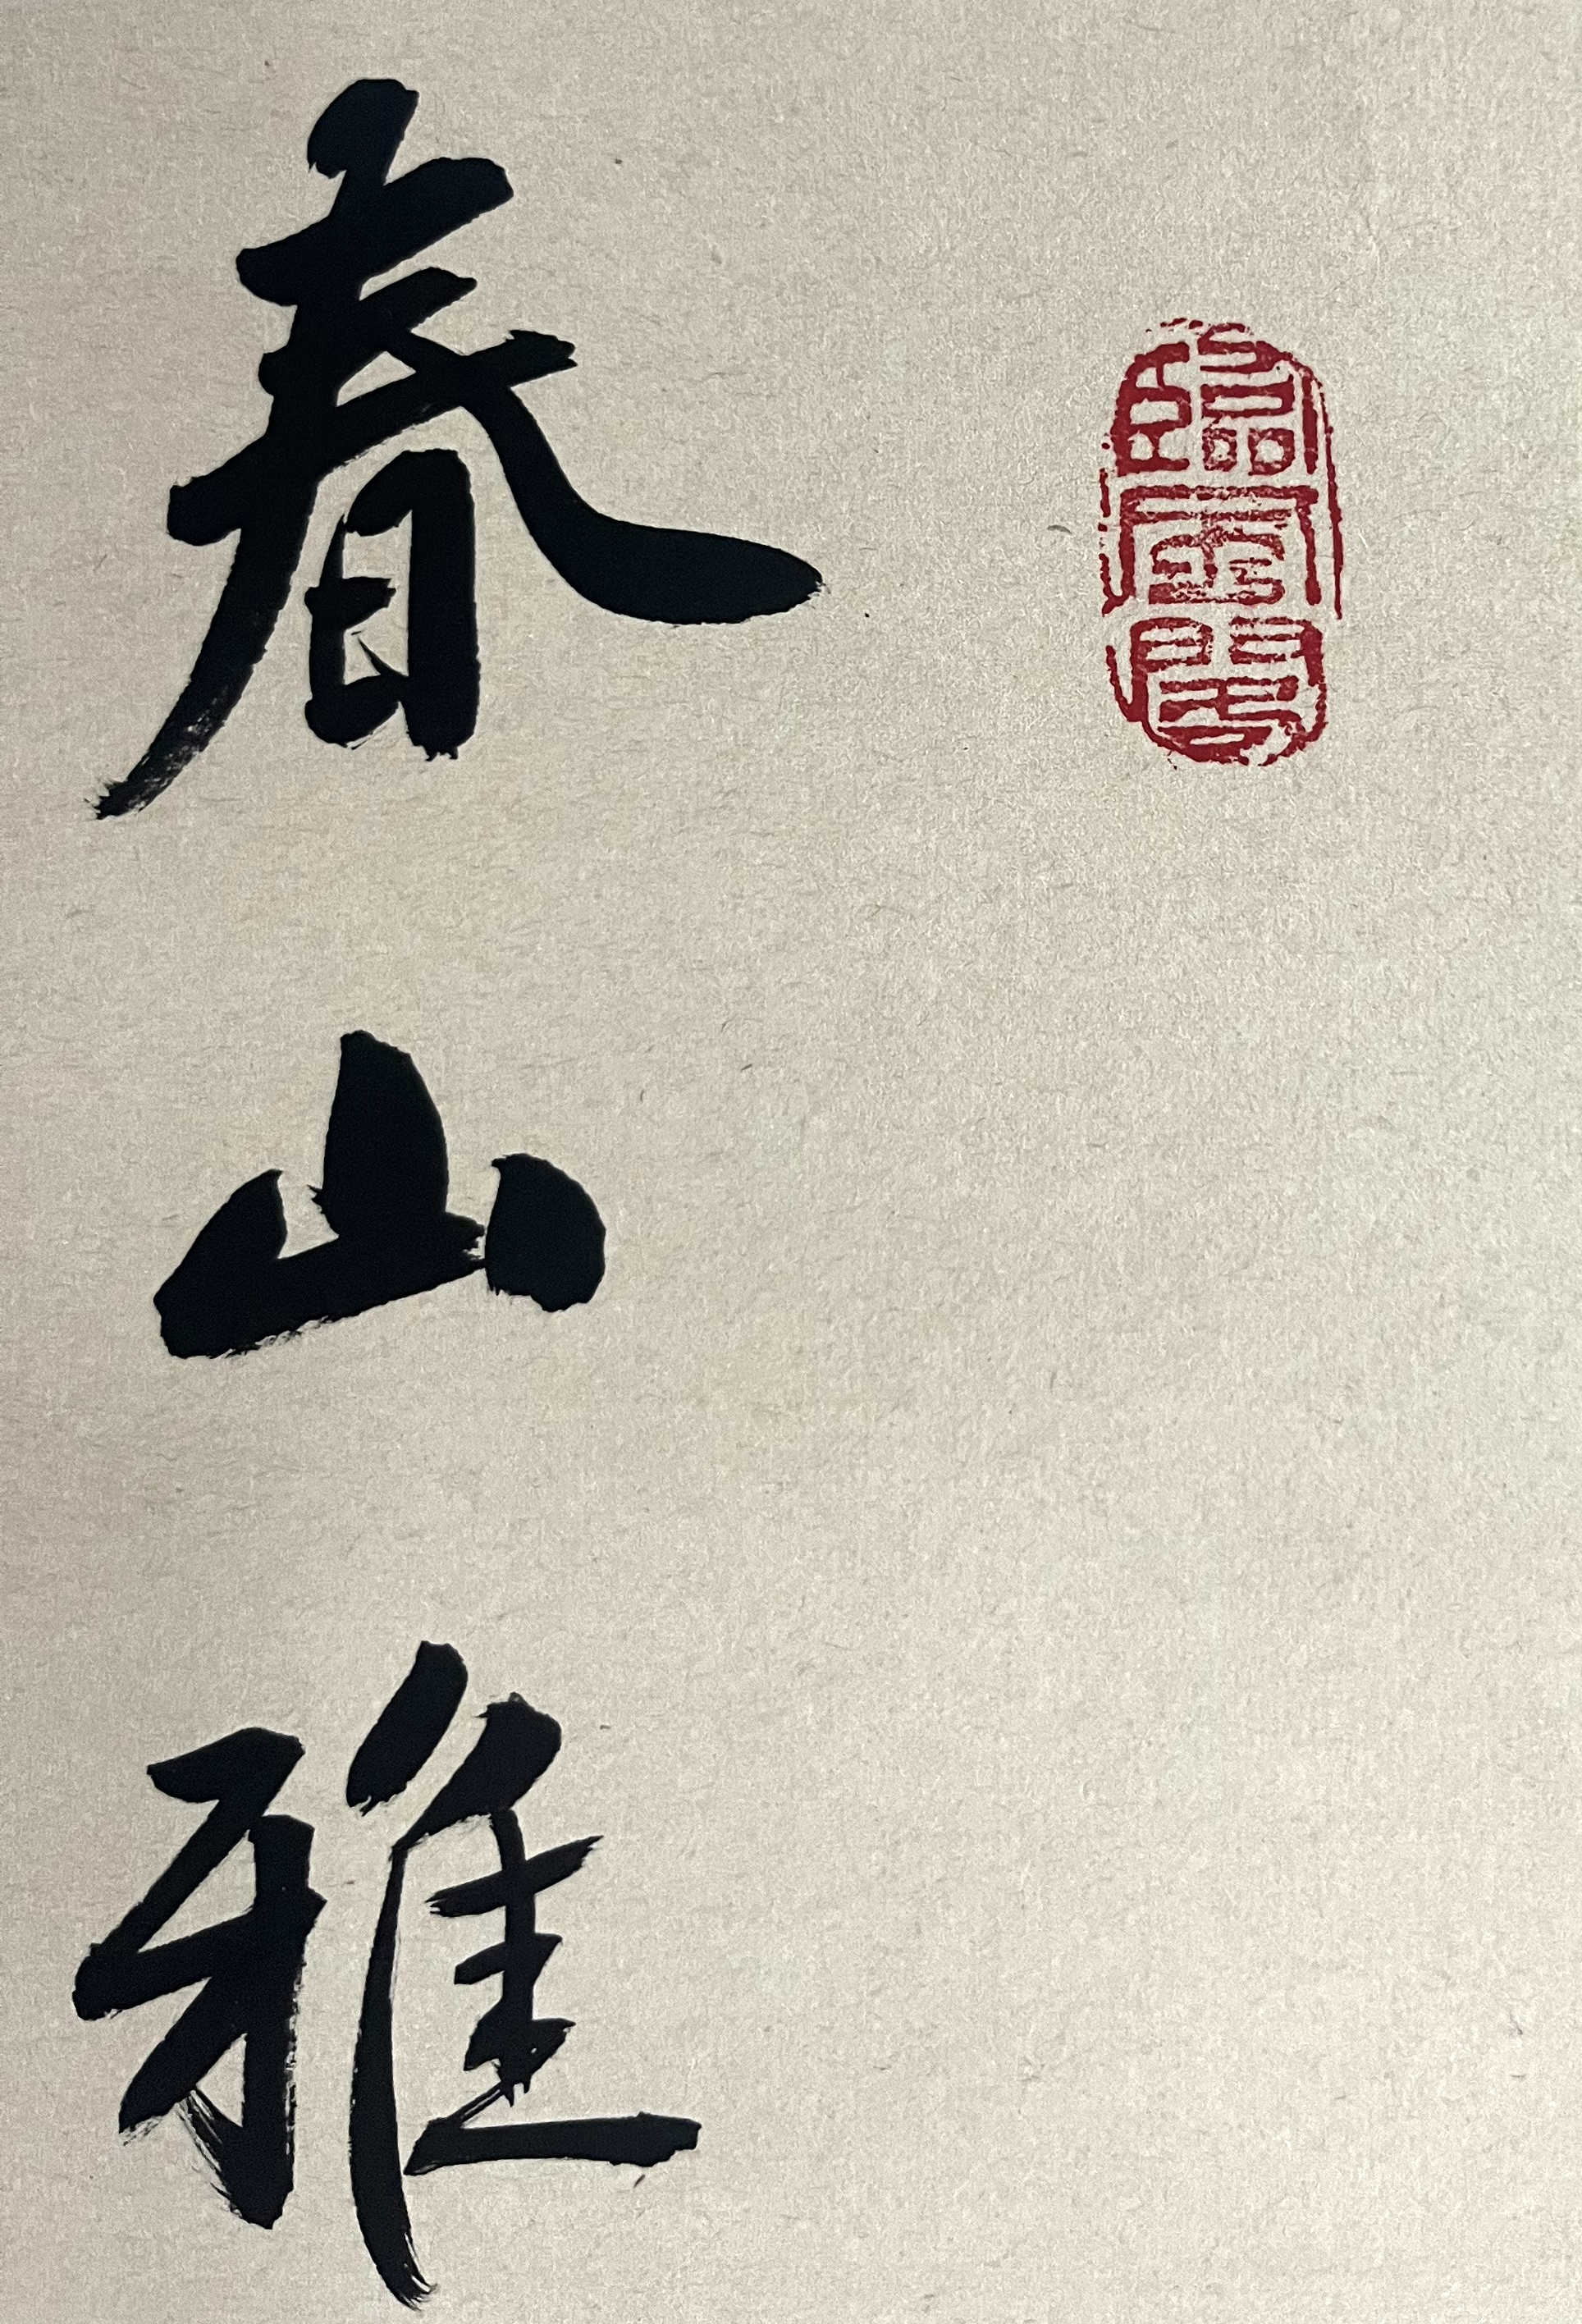 臨雲閣
春山雅